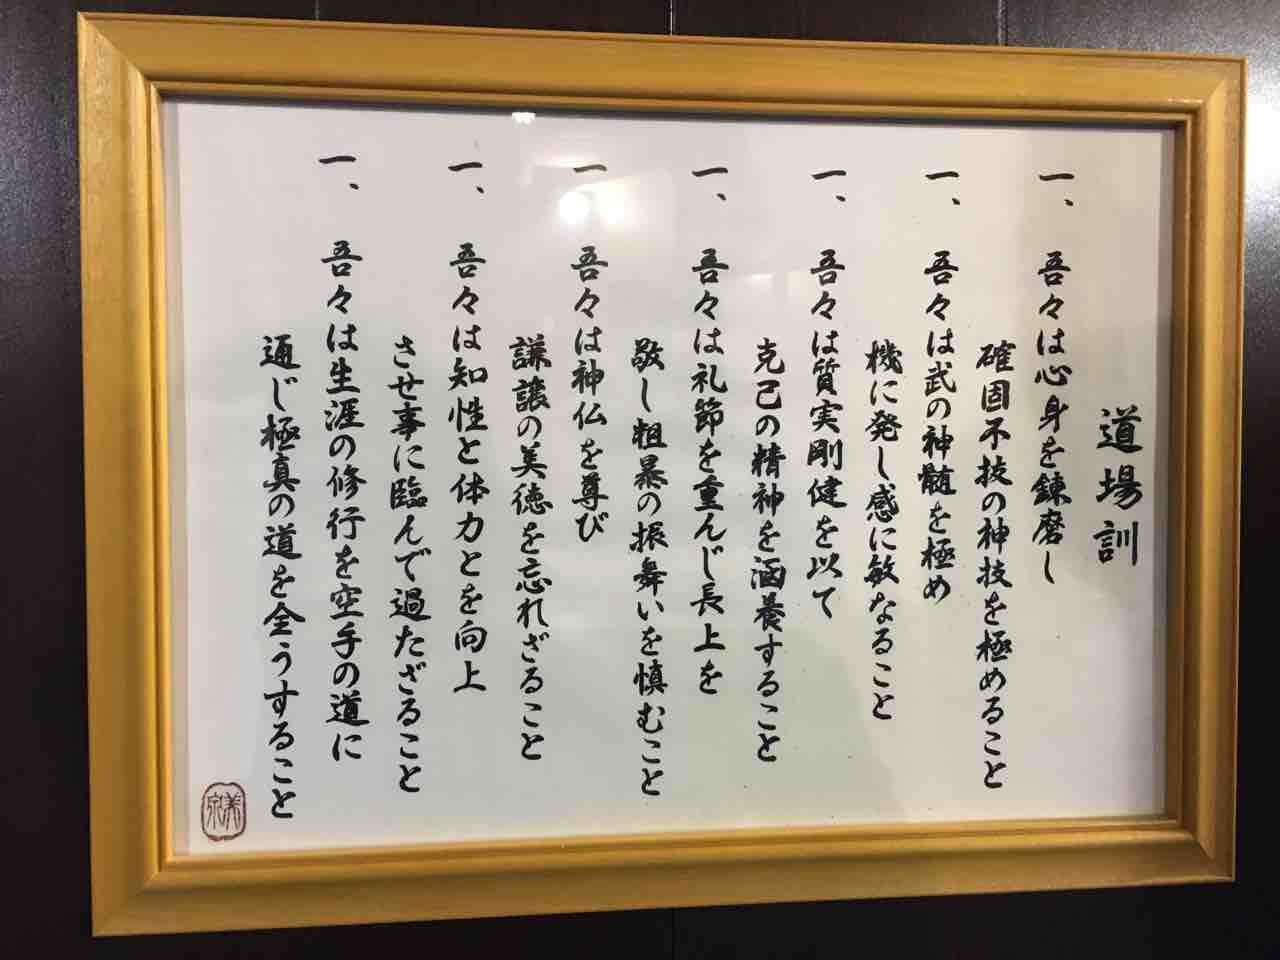 道場訓
一、吾々は心身を錬磨し
確固不技の神技を極めること
一、吾々は武の神髄を極め
機に発し感に敏なること
一、吾々は質実剛健を以て
克己の精神を涵養すること
一、吾々は礼節を重んじ長上を
敬し粗暴の振舞いを慎むこと
一 吾々は神仏を尊び
謙譲の美徳を忘れざること
一、吾々は知性と体力とを向上
させ事に臨んで過たざること
一、吾々は生涯の修行を空手の道に
通じ極真の道を全うすること